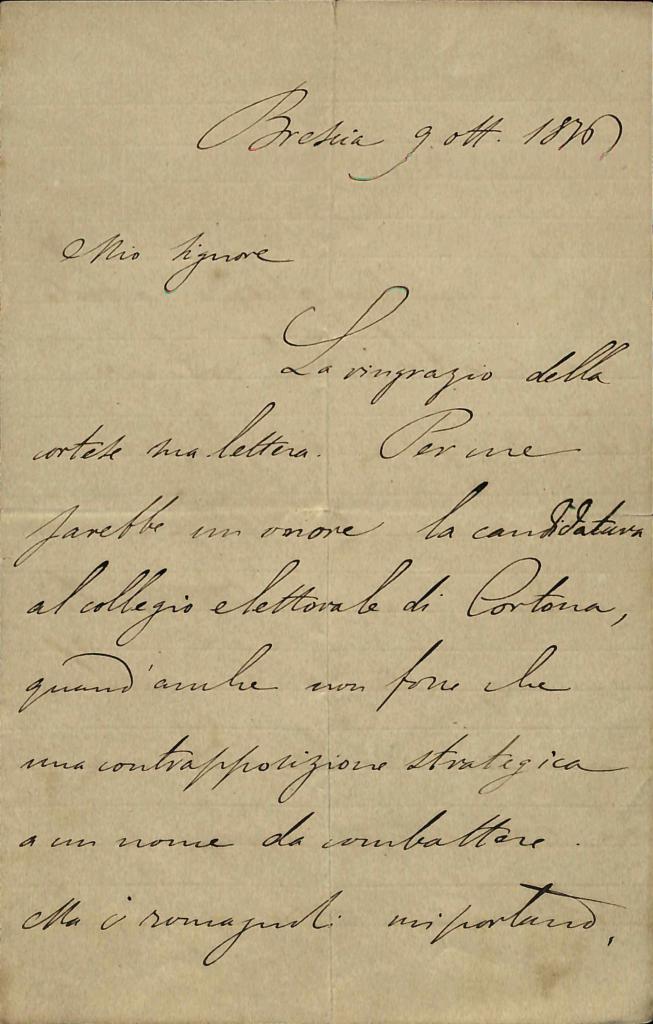 Brescia 9 ott. 1876
Mio signore
La ringrazio della
cortese sua lettera. Per me
sarebbe un onore la candidatura
al collegio elettorale di Cortona,
quand'anche non fosse che
una contrapposizione strategica
a un nome da combattere.
Ma i romagnoli mi portano,